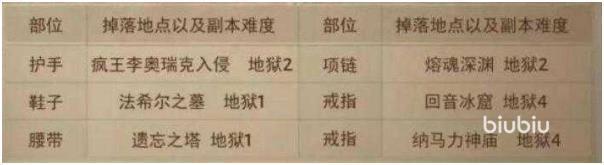 部位 掉落地点以及副本难度 部位 掉落地点以及副本难度
护手 疯王李奥瑞克入侵 地狱2 项链 熔魂深渊 地狱2
鞋子 法希尔之墓 地狱1 戒指 回音冰窟 地狱4
腰带 遗忘之塔 地狱1 戒指 纳马力神庙 地狱4
biubiu